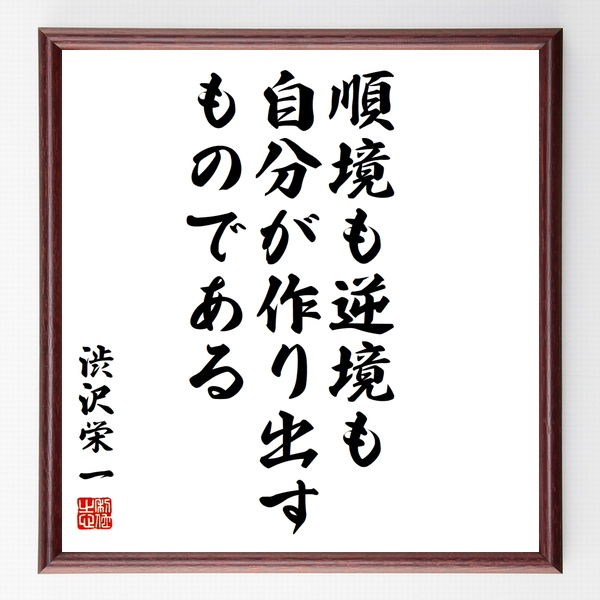 順境も逆境も
自分が作り出す
ものである
渋沢栄一